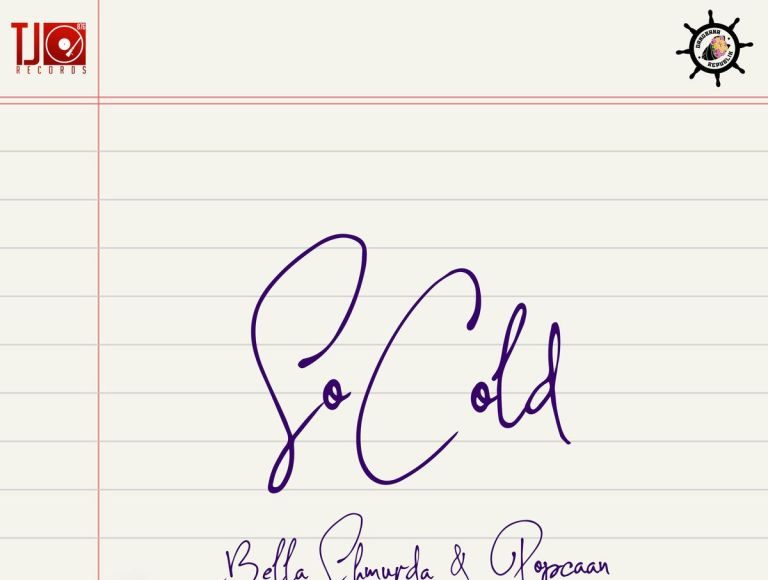 TJ 876
RECORDS
DANGBANA
REPUBLIK
So Cold
Bella Shmurda & Popcaan